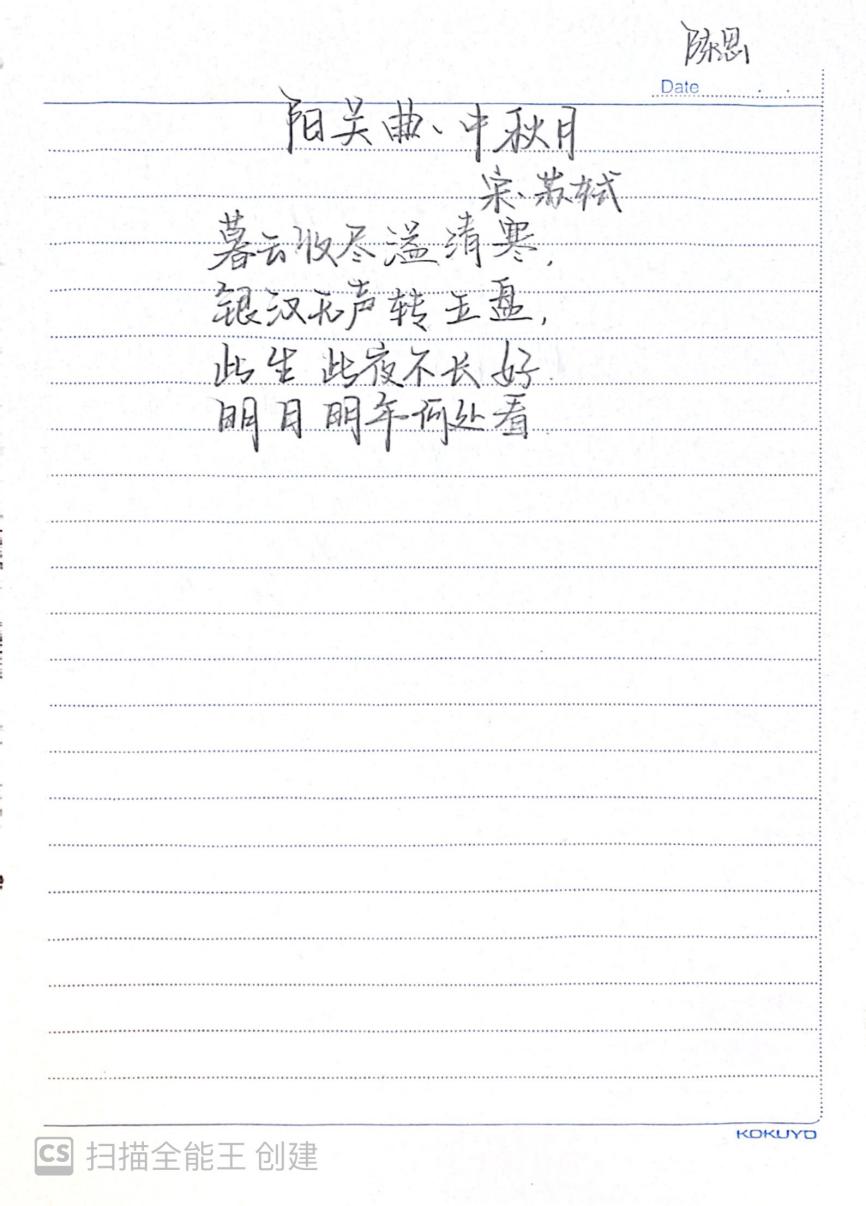 陈恩
Date
阳关曲、中秋月
宋、苏轼
暮云收尽溢清寒,
银汉无声转玉盘,
此生此夜不长好.
明月明年何处看.
KOKUYO
CS 扫描全能王 创建